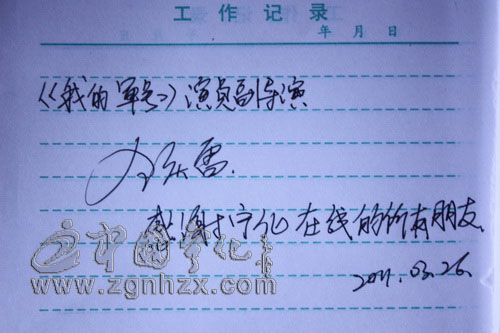 工作记录
年 月 日
《我的军号》演员副导演
雷
感谢宁化在线的所有朋友.
2011.03.26.
中国宁化
www.zgnhzx.com